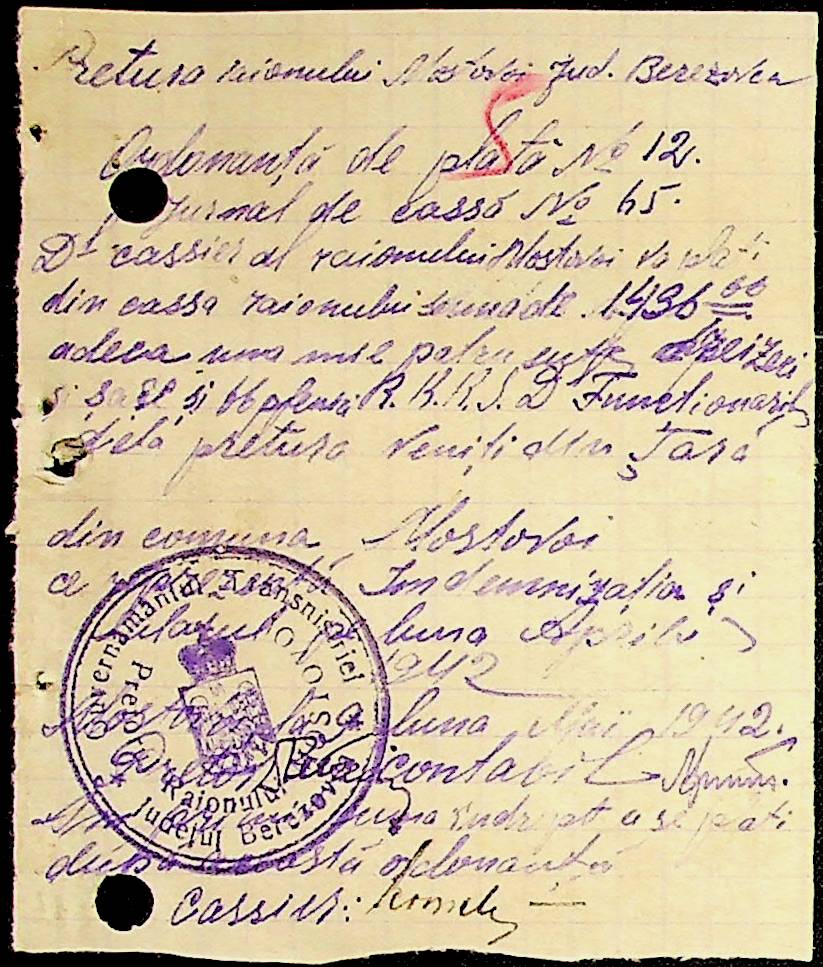 Pretura raionului Mostovoi Jud. Berezovca
Ordonanță de plată № 12.
Jurnal de cassă № 65.
Dl cassier al raionului Mostovoi va plăti
din cassa raionului suma de 1436 00
adeca una mie patru sute treizeci
și șase și 00 R.K.R.S.D Funcționarilor
dela pretura veniți din Țară
din comuna Mostovoi
ce reprezintă Indemnizația și
Salarul pe luna Aprilie
1942
Mostovoi luna Mai 1942.
Pretor contabil
Am primit suma a se plati
după această ordonanță
Cassier:
Guvernământul Transnistriei
Pretura Raionului Mostovoi
Județul Berezovca